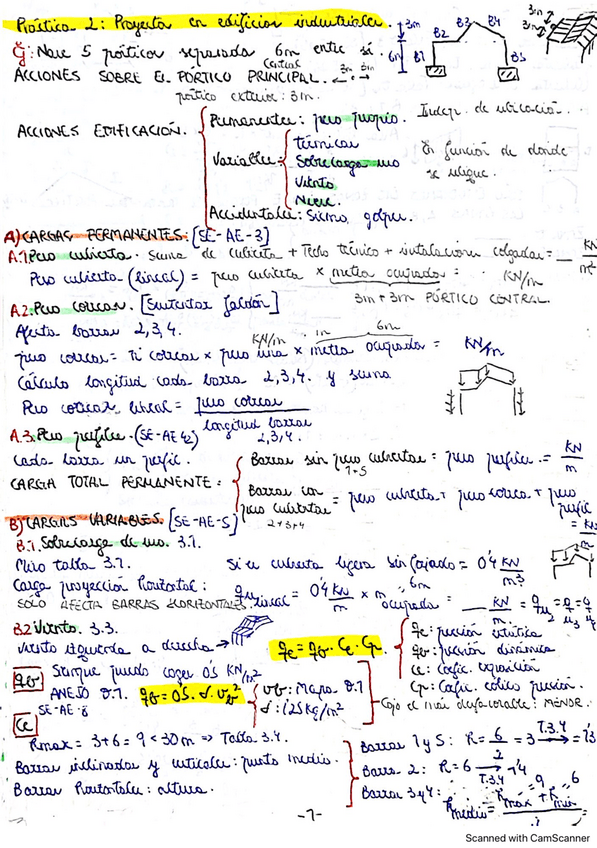 Práctica 2: Proyecto en edificios industriales.
Ej: Nave 5 pórticos separados 6m entre sí.
ACCIONES SOBRE EL PÓRTICO PRINCIPAL.
Central
3m 3m
pórtico extremo: 3m.
3m
6m
B1
B2
B3
B4
B5
3m
3m
ACCIONES EDIFICACIÓN.
Permanentes: peso propio.
Indep. de ubicación.
Variables
térmicas
Sobrecarga uso
Viento
Nieve.
En función de donde
se ubique.
Accidentales: Sismo, golpes.
A) CARGAS PERMANENTES. [SE-AE-3]
A.1. Peso cubierta. Suma de cubierta + Techo técnico + instalaciones colgadas = __ KN/m²
Peso cubierta (lineal) = peso cubierta x metros ocupados = KN/m
3m + 3m PÓRTICO CENTRAL.
A.2. Peso correas. [Sustentar faldón]
Afecta barras 2, 3, 4.
KN/m m 6m
peso correas = nº correas x peso una x metros ocupados = KN/m
Cálculo longitud cada barra 2, 3, 4. y suma
Peso correas lineal = peso correas / longitud barras 2, 3, 4.
A.3. Peso perfiles. (SE-AE 42)
Cada barra un perfil.
CARGA TOTAL PERMANENTE:
Barras sin peso cubiertas = peso perfiles. = KN/m
1+5
Barras con peso cubiertas = peso cubierta + peso correa + peso perfil = KN/m
2+3+4
B) CARGAS VARIABLES. [SE-AE-5]
B.1. Sobrecarga de uso. 3.1.
Miro tabla 3.1. Si es cubierta ligera sin forjado = 0'4 KN/m²
Carga proyección horizontal: qu lineal = 0'4 KN/m x m ocupados = __ KN/m = qu2 = q3 = q4
6m
SÓLO AFECTA BARRAS HORIZONTALES.
B.2. Viento. 3.3.
Viento izquierda a derecha →
qe = qb · Ce · Cp
qe: presión estática
qb: presión dinámica
ce: coefic. exposición
Cp: Coefic. eólico presión.
qb Siempre puedo coger 0'5 KN/m²
ANEJO D.1. qb = 0'5 · d · vb²
SE-AE-8
vb: Mapa D.1
d: 1'25kg/m²
Cojo el más desfavorable: MENOR.
Ce
Rmax = 3+6 = 9 < 30m ⇒ Tabla 3.4.
Barras inclinadas y verticales: punto medio.
Barras Horizontales: altura.
Barras 1 y 5: R = 6/2 = 3 T.3.4 → = 1'3
Barra 2: R = 6 → T.3.4 1'4
Barras 3 y 4: R medio = R máx + R mín / 2
9 6
-7-
Scanned with CamScanner